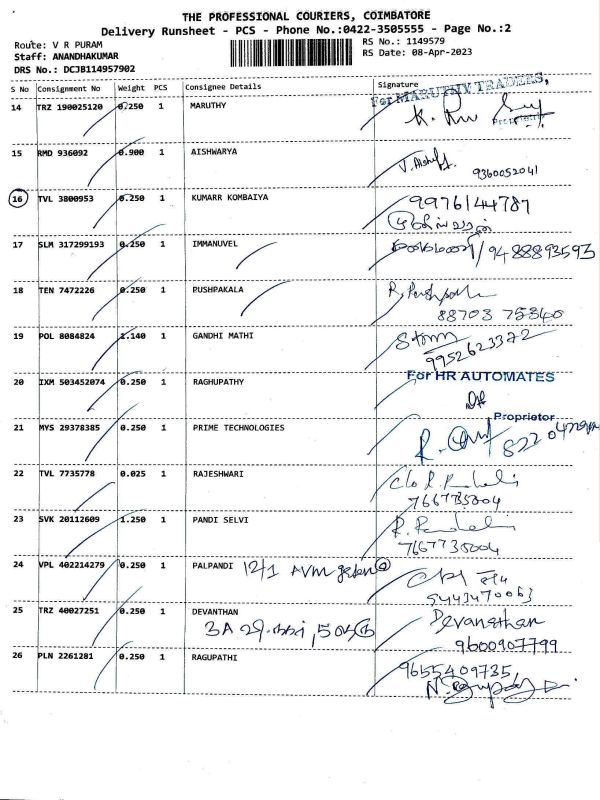 THE PROFESSIONAL COURIERS, COIMBATORE
Delivery Runsheet - PCS - Phone No.:0422-3505555 - Page No.:2
Route: V R PURAM RS No.: 1149579
Staff: ANANDHAKUMAR RS Date: 08-Apr-2023
DRS No.: DCJB114957902
S No Consignment No Weight PCS Consignee Details Signature
For MARUTHY TRADERS,
14 TRZ 190025120 0.250 1 MARUTHY
Proprietor
15 RMD 936092 0.900 1 AISHWARYA
9360052041
16 TVL 3800953 0.250 1 KUMARR KOMBAIYA 9976144787
17 SLM 317299193 0.250 1 IMMANUVEL 9488893593
18 TEN 7472226 0.250 1 PUSHPAKALA
88703 75340
19 POL 8084824 1.140 1 GANDHI MATHI
9952623372
For HR AUTOMATES
20 IXM 503452074 0.250 1 RAGHUPATHY
Proprietor
21 MYS 29378385 0.250 1 PRIME TECHNOLOGIES
22 TVL 7735778 0.025 1 RAJESHWARI
7667735004
23 SVK 20112609 1.250 1 PANDI SELVI
7667735004
24 VPL 402214279 0.250 1 PALPANDI 12/1 AVM
5443470063
25 TRZ 40027251 0.250 1 DEVANTHAN Devanathan
3A
9600907799
26 PLN 2261281 0.250 1 RAGUPATHI 9655409735,